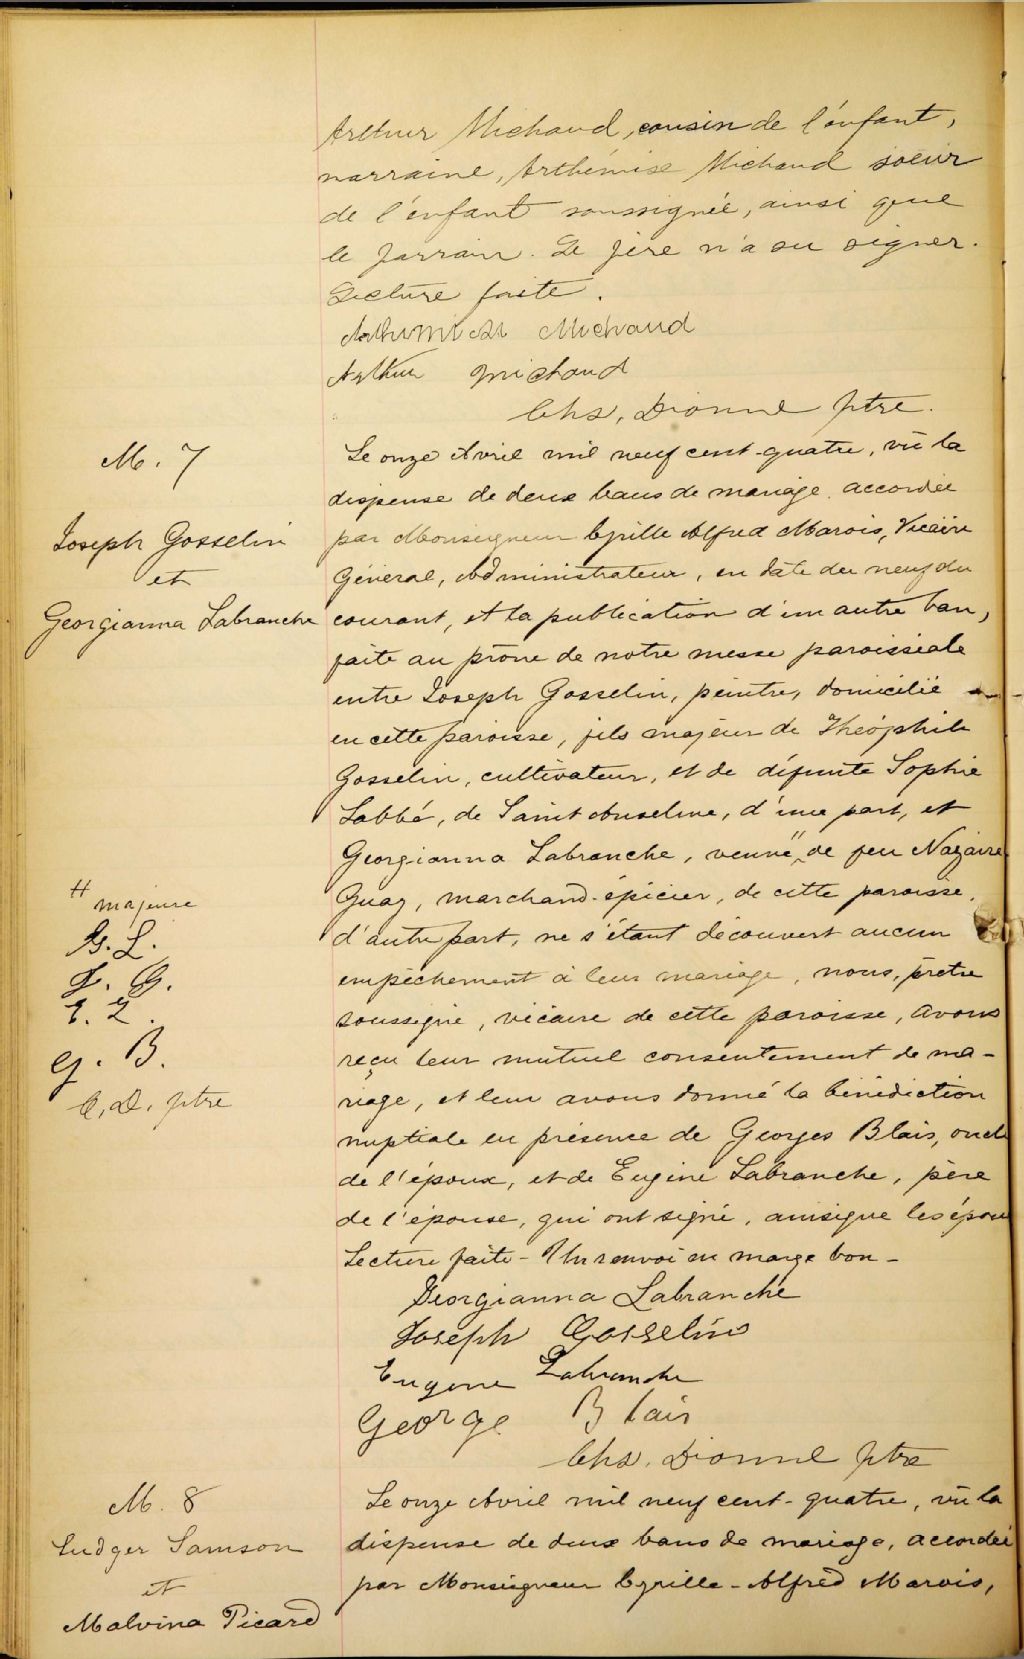 Arthur Michaud, cousin de l'enfant,
marraine, Arthémise Michaud soeur
de l'enfant soussignée, ainsi que
le parrain. Le père n'a su signer.
Lecture faite.
Michaud
Arthur Michaud
Chs, Dionne ptre.
M. 7
Joseph Gosselin
et
Georgianna Labranche
Le onze Avril mil neuf cent-quatre, vû la
dispense de deux bans de mariage accordée
par Monseigneur Cyrille Alfred Marois, Vicaire
Général, Administrateur, en date du neuf du
courant, et la publication d'un autre ban,
faite au prône de notre messe paroissiale
entre Joseph Gosselin, peintre, domicilié
en cette paroisse, fils majeur de Théophile
Gosselin, cultivateur, et de défunte Sophie
Labbé, de Saint Anselme, d'une part, et
Georgianna Labranche, veuve " de feu Nazaire
Guay, marchand-épicier, de cette paroisse,
d'autre part, ne s'étant découvert aucun
empêchement à leur mariage, nous, prêtre
soussigné, vicaire de cette paroisse, avons
reçu leur mutuel consentement de ma-
riage, et leur avons donné la bénédiction
nuptiale en présence de Georges Blais, oncle
de l'époux, et de Eugène Labranche, père
de l'épouse, qui ont signé, ainsique les époux
Lecture faite - Un renvoi en marge bon -
" majeure
G. L.
J. G.
E. L.
G. B.
C. D. ptre
Georgianna Labranche
Joseph Gosselin
Eugene Labranche
George Blais
Chs. Dionne ptre
M. 8
Ludger Samson
et
Malvina Picard
Le onze Avril mil neuf cent-quatre, vû la
dispense de deux bans de mariage, accordée
par Monseigneur Cyrille-Alfred Marois,